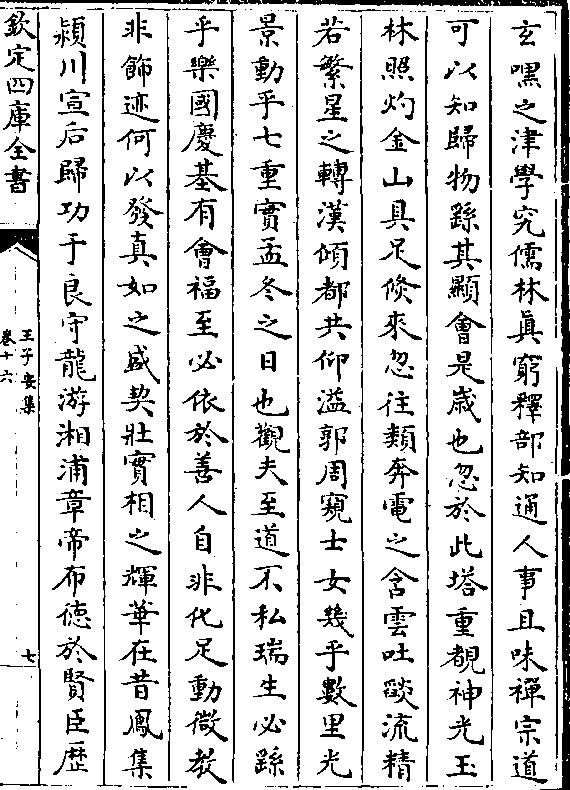 玄嘿之津學究儒林真窮釋部知通人事且味禪宗道
可以知歸物繇其顯會是歲也忽於此塔重覩神光玉
林照灼金山具足倐來忽往類奔電之含雲吐燄流精
若繁星之轉漢傾都共仰溢郭周窺士女幾乎數里光
景動乎七重實孟冬之日也觀夫至道不私瑞生必繇
乎樂國慶基有會福至必依於善人自非化足動微教
非飾迹何以發真如之盛契壯實相之輝華在昔鳳集
潁川宣后歸功于良守龍游湘浦章帝布德於賢臣歷
欽定四庫全書
王子安集
卷十六
七